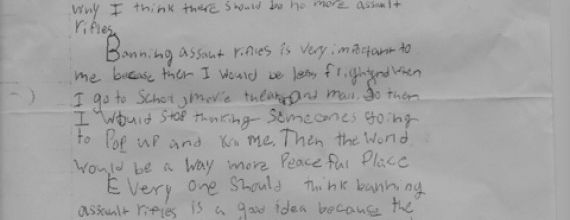 why I think there should be no more assault
rifles.
Banning assaut rifles is very important to
me because then I would be less frightend when
I go to School, movie theater, and mall. So then
I would stop thinking Someones going
to Pop up and kill me. Then the World
Would be a Way more Peaceful Place
Every one Should think banning
assault rifles is a good idea because the